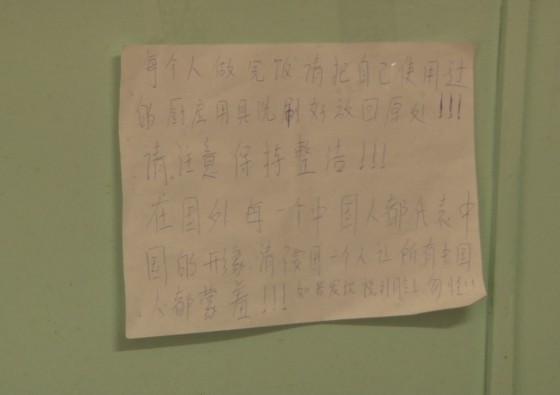 每个人做完饭请把自己使用过
的厨房用具洗刷好放回原处!!!
请注意保持整洁!!!
在国外每一个中国人都代表中
国的形象 请 因一个人让所有中国
人都蒙羞!!! 如若发现